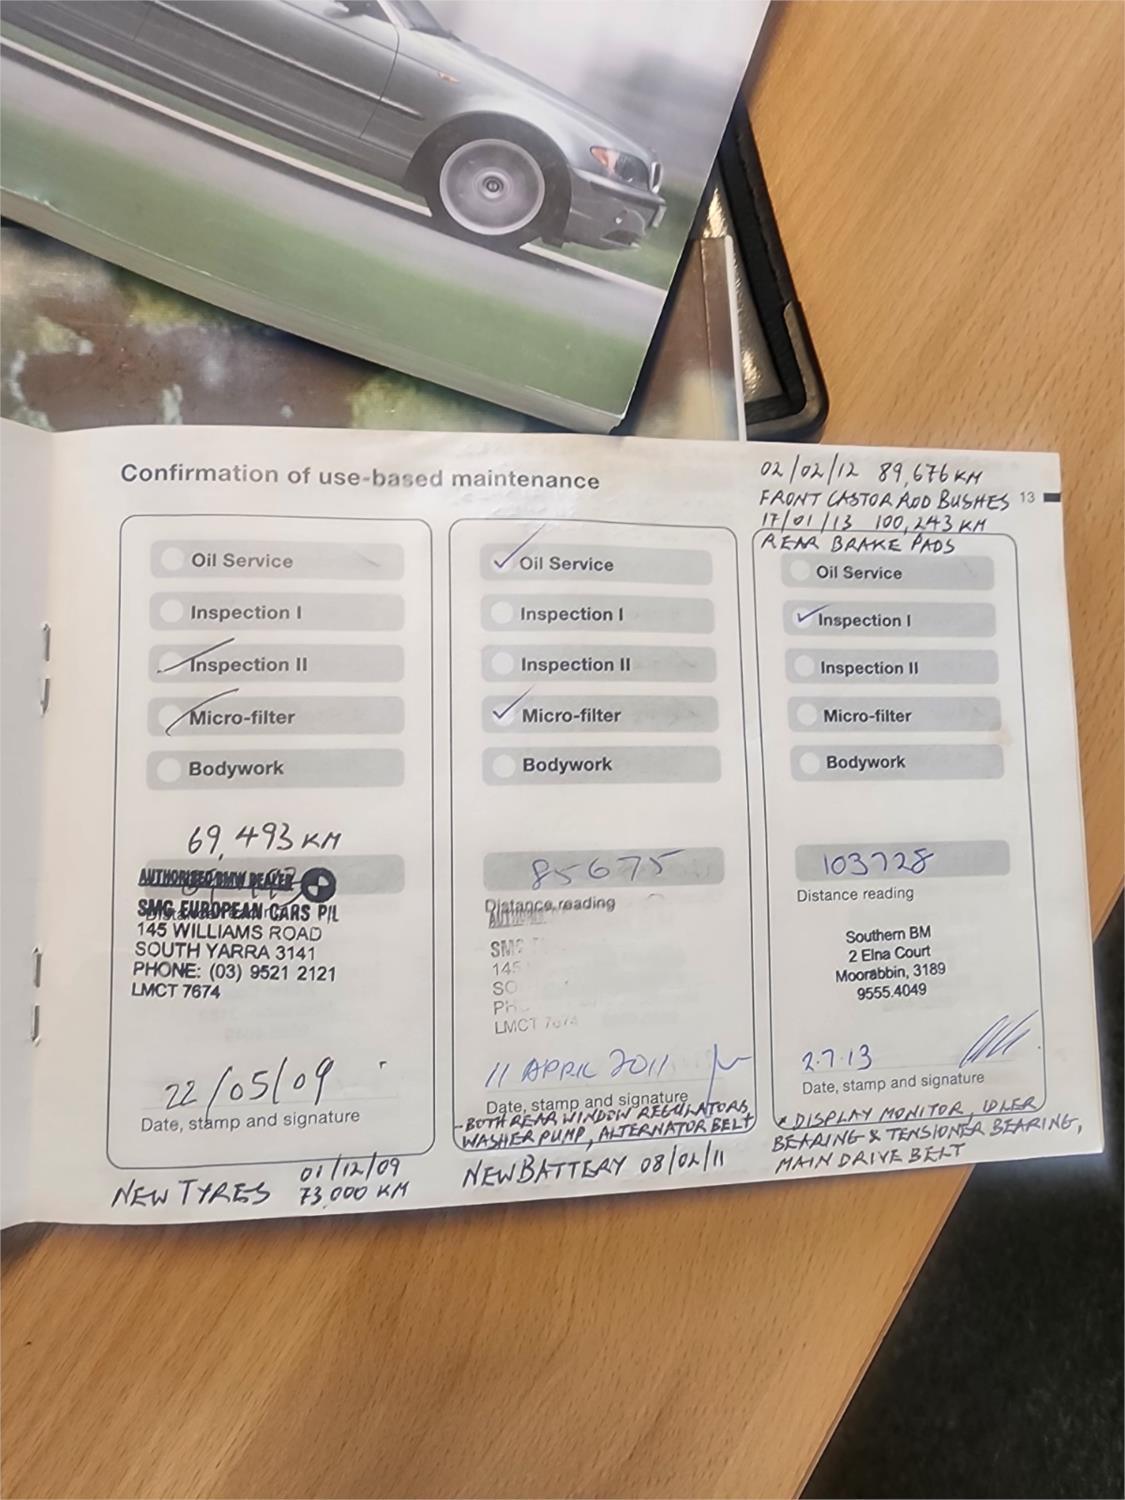 Confirmation of use-based maintenance
13
Oil Service
Inspection I
Inspection II
Micro-filter
Bodywork
69,493 KM
AUTHORISED BMW DEALER
SMG EUROPEAN CARS P/L
145 WILLIAMS ROAD
SOUTH YARRA 3141
PHONE: (03) 9521 2121
LMCT 7674
22/05/09
Date, stamp and signature
NEW TYRES 01/12/09
73,000 KM
Oil Service
Inspection I
Inspection II
Micro-filter
Bodywork
85675
Distance reading
SMG
145
SO
PH
LMCT 7674
11 APRIL 2011
Date, stamp and signature
- BOTH REAR WINDOW REGULATORS,
WASHER PUMP, ALTERNATOR BELT
NEW BATTERY 08/02/11
02/02/12 89,676 KM
FRONT CASTOR ROD BUSHES
17/01/13 100,243 KM
REAR BRAKE PADS
Oil Service
Inspection I
Inspection II
Micro-filter
Bodywork
103728
Distance reading
Southern BM
2 Elna Court
Moorabbin, 3189
9555.4049
2.7.13
Date, stamp and signature
* DISPLAY MONITOR, IDLER
BEARING & TENSIONER BEARING,
MAIN DRIVE BELT